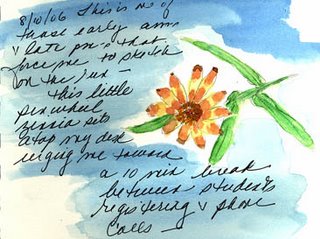 8/10/06 This is one of
those early ams
& late pms that
force me to sketch
on the run –
this little
pinwheel
zinnia sits
atop my desk
urging me toward
a 10 min break
between students
registering & phone
calls –